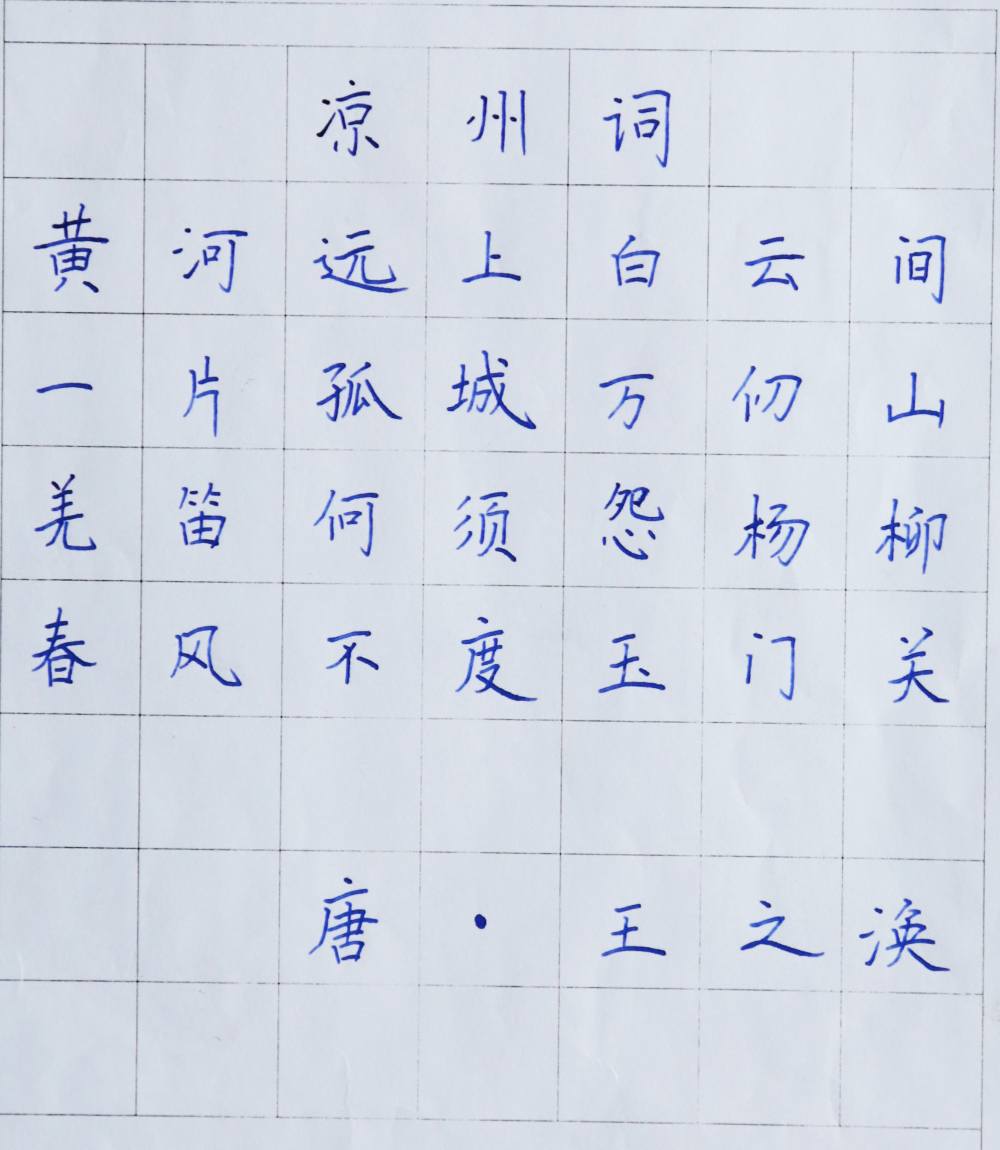 凉州词
黄河远上白云间
一片孤城万仞山
羌笛何须怨杨柳
春风不度玉门关
唐·王之涣